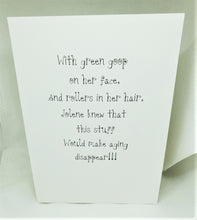 With green goop
on her face,
And rollers in her hair,
Jolene knew that
this stuff
Would make aging
disappear!!!